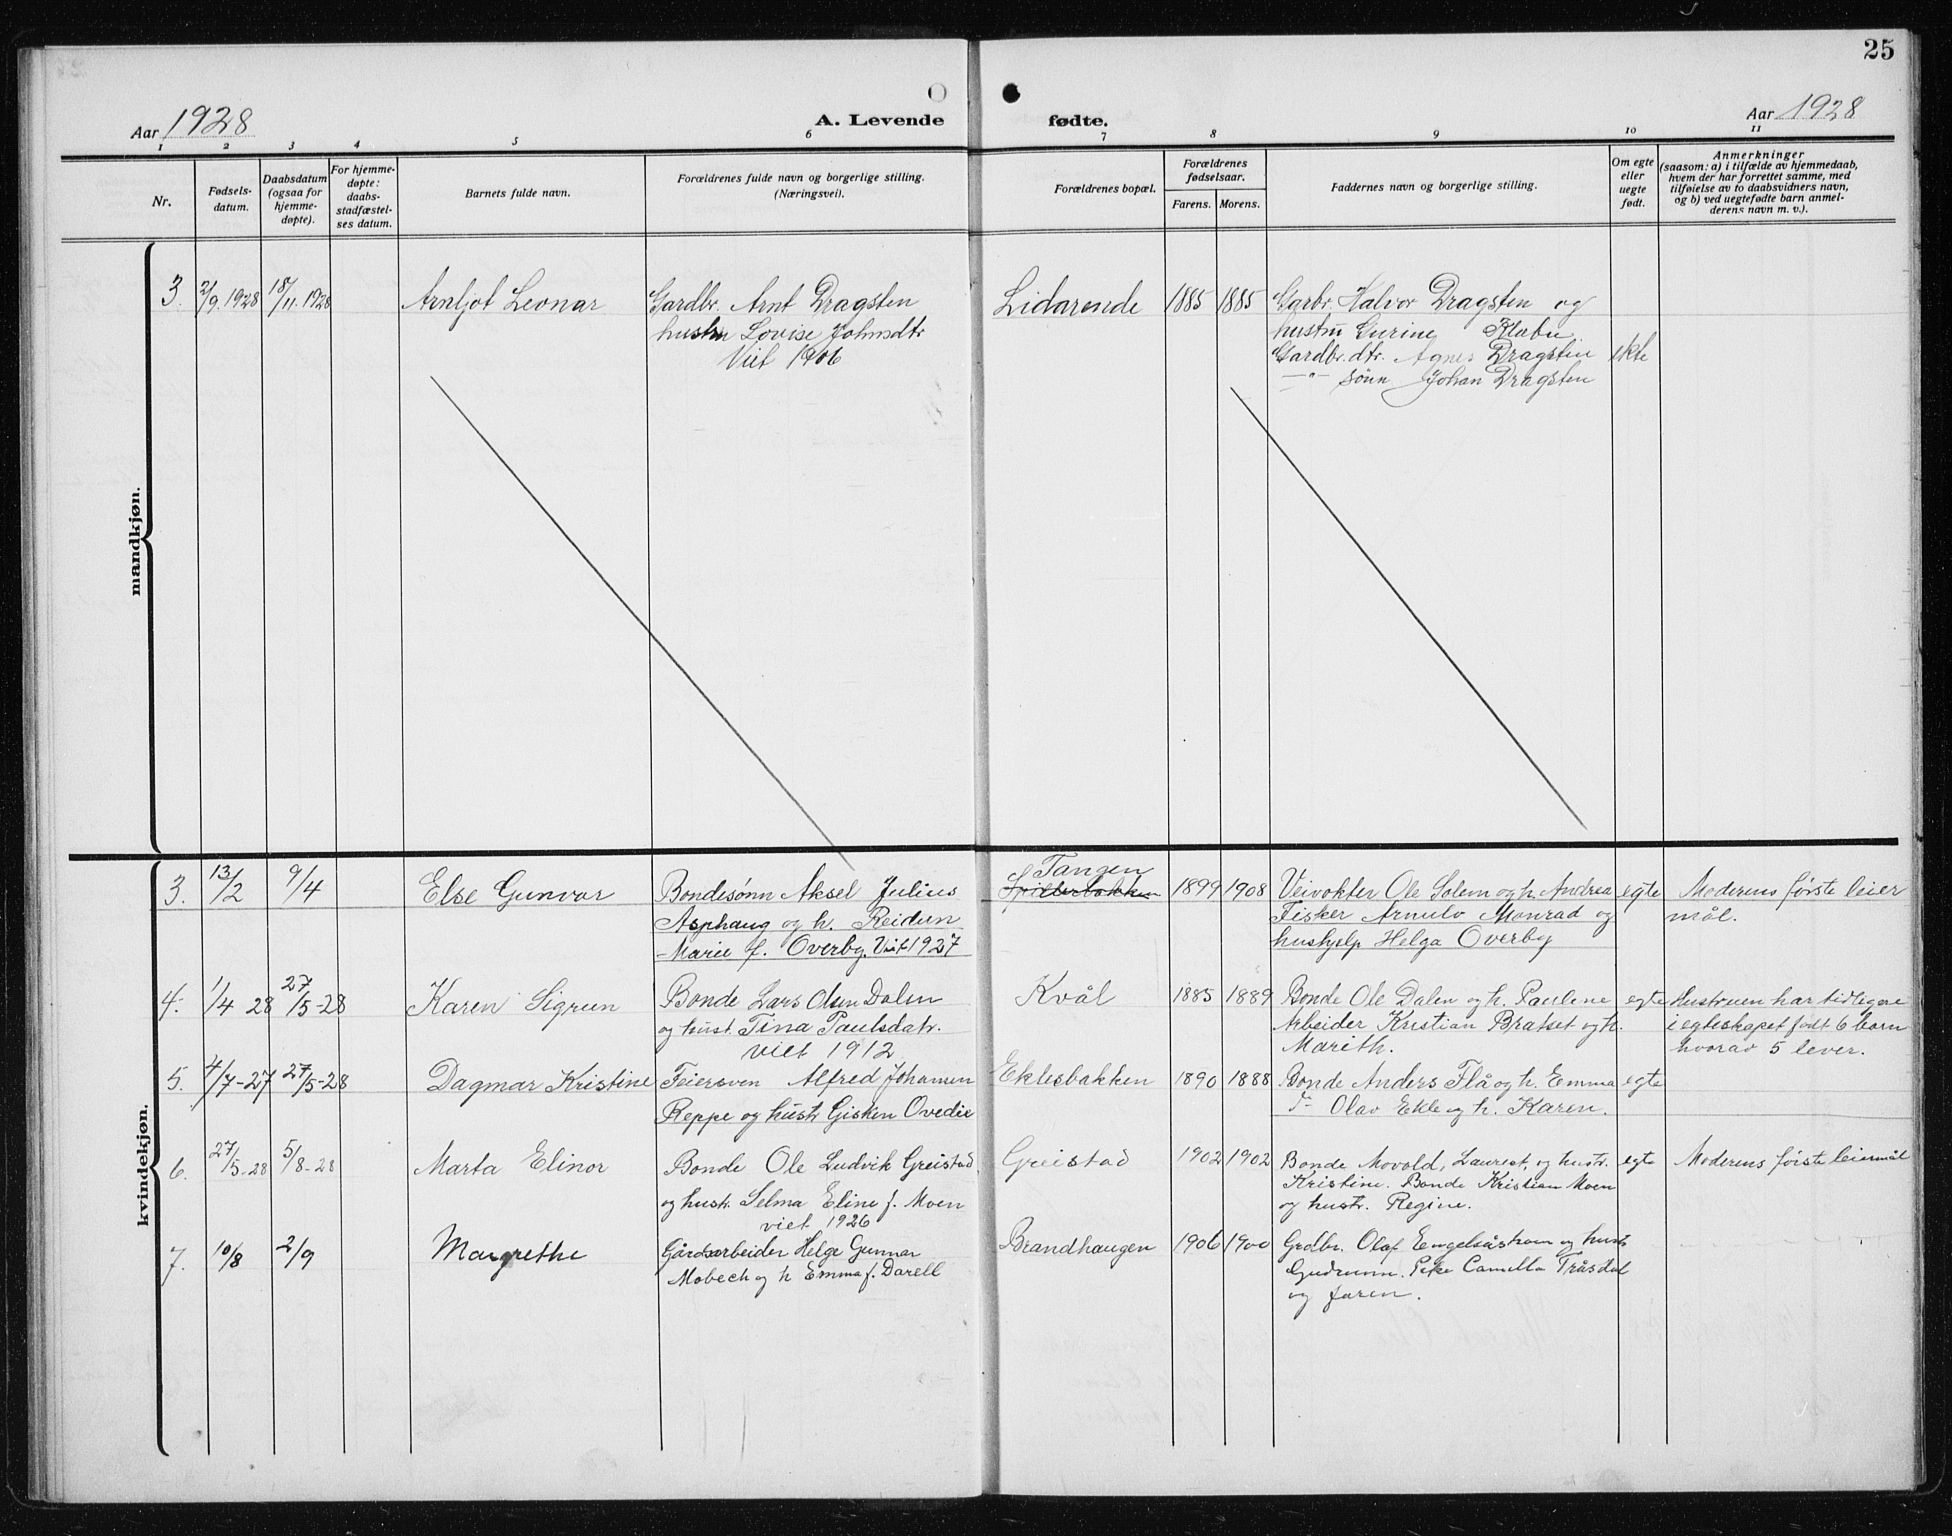 25
Aar 1928
A. Levende fødte.
Aar 1928
1 2 3 4 5 6 7 8 9 10 11
Nr.
Fødsels-
datum.
Daabsdatum
(ogsaa for
hjemme-
døpte).
For hjemme-
døpte:
daabs-
stadfæstel-
ses datum.
Barnets fulde navn.
Forældrenes fulde navn og borgerlige stilling.
(Næringsvei).
Forældrenes bopæl.
Forældrenes
fødselsaar.
Farens. Morens.
Faddernes navn og borgerlige stilling.
Om egte
eller
uegte
født.
Anmerkninger
(saasom: a) i tilfælde av hjemmedaab,
hvem der har forrettet samme, med
tilføielse av to daabsvidners navn,
og b) ved uegtefødte barn anmel-
derens navn m. v.).
mandkjøn.
3. 2/9. 1928 18/11. 1928 Arnljot Leonar
Gardbr. Arnt Dragsten
hustru Lovise Johnsdtr
Viet 1906
Lidarende 1885 1885
Garbr. Halvor Dragsten og
hustru Gurine Klæbu
Gardbr. dtr. Agnes Dragsten ekte
—"— sönn Johan Dragsten
kvindekjøn.
3. 13/2 9/4 Else Gunvor
Bondesønn Aksel Julius
Asphaug og h. Reidun
Marie f. Overby. Viet 1927
Tangen
1899 1908
Veivokter Ole Solem og h. Andrea
Fisker Arnulv Monrad og
hushjelp Helga Overby
egte
Moderens første leier
mål.
4. 1/4 28 27/5-28 Karen Sigrun
Bonde Lars Olsen Dalen
og hust. Tina Paulsdatr.
viet 1912
Kvål 1885 1889
Bonde Ole Dalen og h. Paulene
Arbeider Kristian Bratset og h.
Marith.
egte
Hustruen har tidligere
i egteskapet født 6 barn
hvorav 5 lever.
5. 4/7-27 27/5-28 Dagmar Kristine
Feiersven Alfred Johansen
Reppe og hustr Gisken Ovedie
Eklesbakken 1890 1888
Bonde Anders Flå og h. Emma
—"— Olav Ekle og h. Karen.
egte
6. 27/5-28 5/8-28 Marta Elinor
Bonde Ole Ludvik Greistad
og hustr. Selma Eline f. Moen
viet 1926
Greistad 1902 1902
Bonde Movold, Laurest, og hustr.
Kristine. Bonde Kristian Moen
og hustr. Regine.
egte
Moderens første leiermål
7. 10/8 2/9 Margrethe
Gårdsarbeider Helge Gunnar
Mobech og h Emma f. Darell
Brandhaugen 1906 1900
Grdbr. Olaf Engelsåstrøm og hustr
Gudrunn. Pike Camilla Tråsdal
og faren.